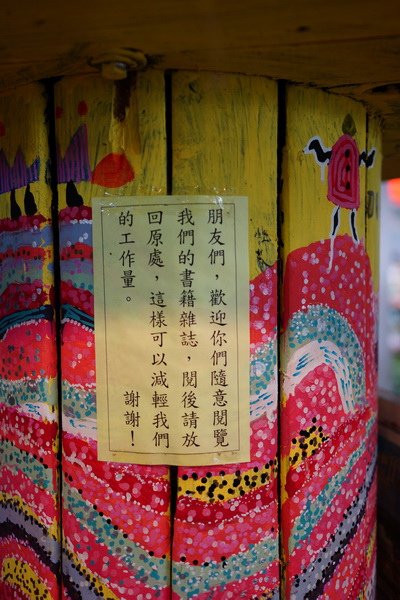 朋友們，歡迎你們隨意閱覽
我們的書籍雜誌，閱後請放
回原處，這樣可以減輕我們
的工作量。　　　謝謝！